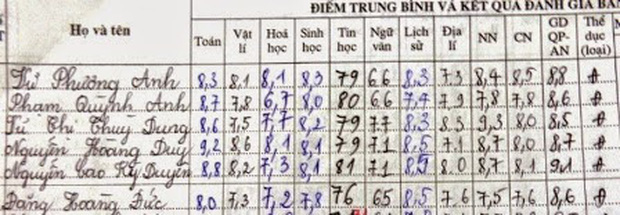 ĐIỂM TRUNG BÌNH VÀ KẾT QUẢ ĐÁNH GIÁ
Họ và tên Toán Vật lí Hoá học Sinh học Tin học Ngữ văn Lịch sử Địa lí NN CN GD QP-AN Thể dục (loại)
Từ Phương Anh 8,3 8,1 8,1 8,3 79 6.6 8,3 7.3 8,4 8,5 8,8 Đ
Phạm Quỳnh Anh 8,7 7,8 6,7 8,0 80 6.6 7,4 7.9 7,8 7,8 8,6 Đ
Từ Thị Thuỳ Dung 8,6 7,5 7,7 8,2 79 7.7 8,3 8.3 9,3 8.0 8.5 Đ
Nguyễn Hoàng Duy 9,2 8,6 8,1 8,1 79 7.1 8,5 7.1 8,7 8.0 8,7 Đ
Nguyễn Cao Kỳ Duyên 8,8 8,2 7,3 8,1 81 7.1 8,5 8.0 8,7 8,1 9,1 Đ
Đặng Hoàng Đức 8,0 7,3 7,2 7,8 76 65 8,5 7.6 7,5 7,6 8,6 Đ